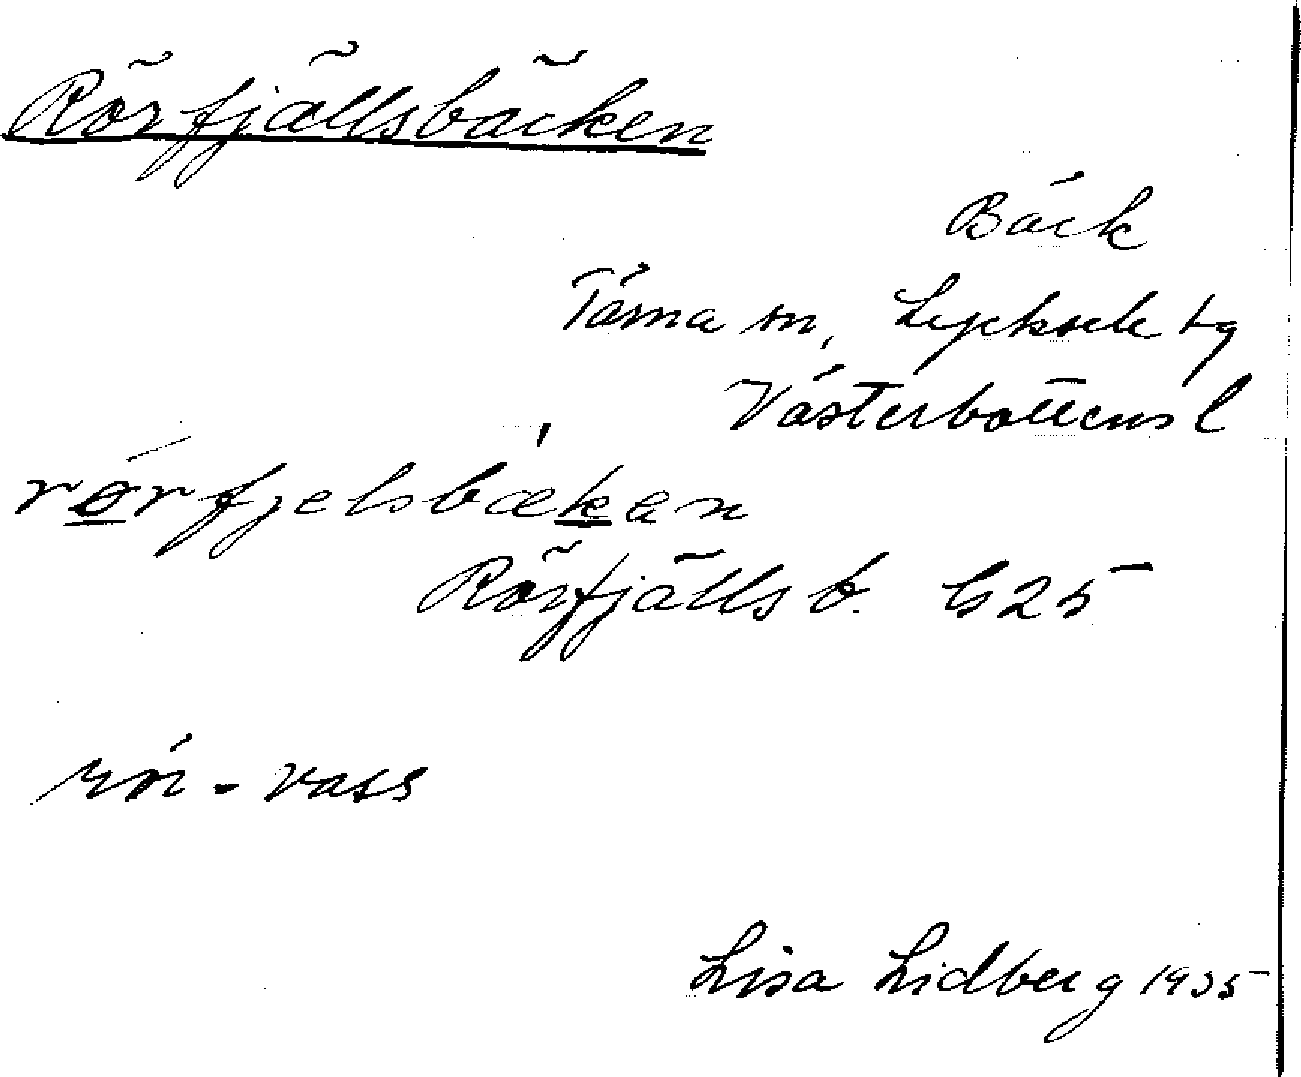 Rörfjällsbäcken
Bäck
Tärna sn, Lycksele tg
Västerbottens l
rörfjelsbækan
Rörfjälls b. G25
rör - vass
Lisa Lidberg 1935